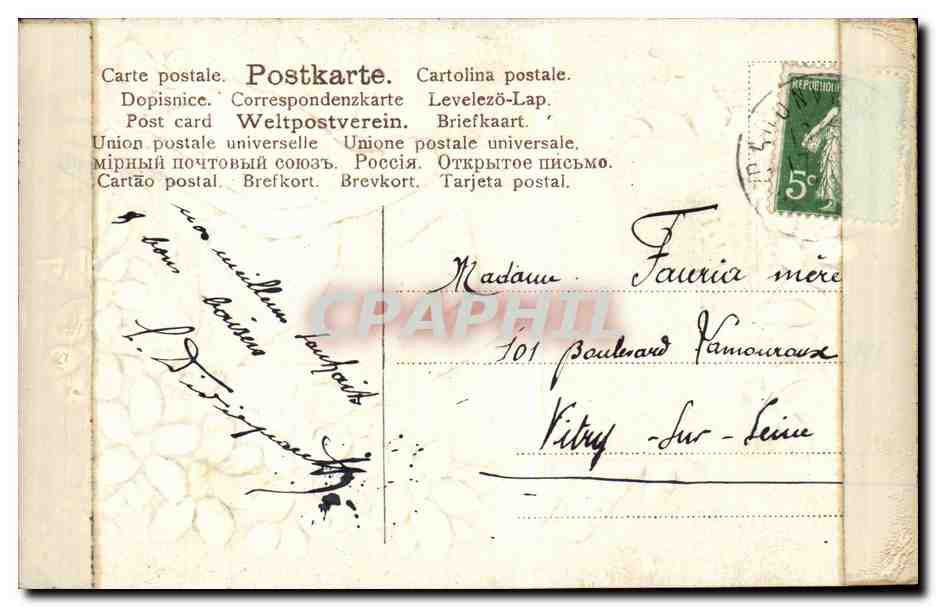 Carte postale. Postkarte. Cartolina postale.
Dopisnice. Correspondenzkarte Levelező-Lap.
Post card Weltpostverein. Briefkaart.
Union postale universelle Unione postale universale.
мірный почтовый союзъ. Россія. Открытое письмо.
Cartão postal. Brefkort. Brevkort. Tarjeta postal.
REPUBLIQUE
5c
nos meilleurs souhaits
& bons baisers
Madame Fauria mère
101 Boulevard Lamouroux
Vitry-sur-Seine
CPAPHIL